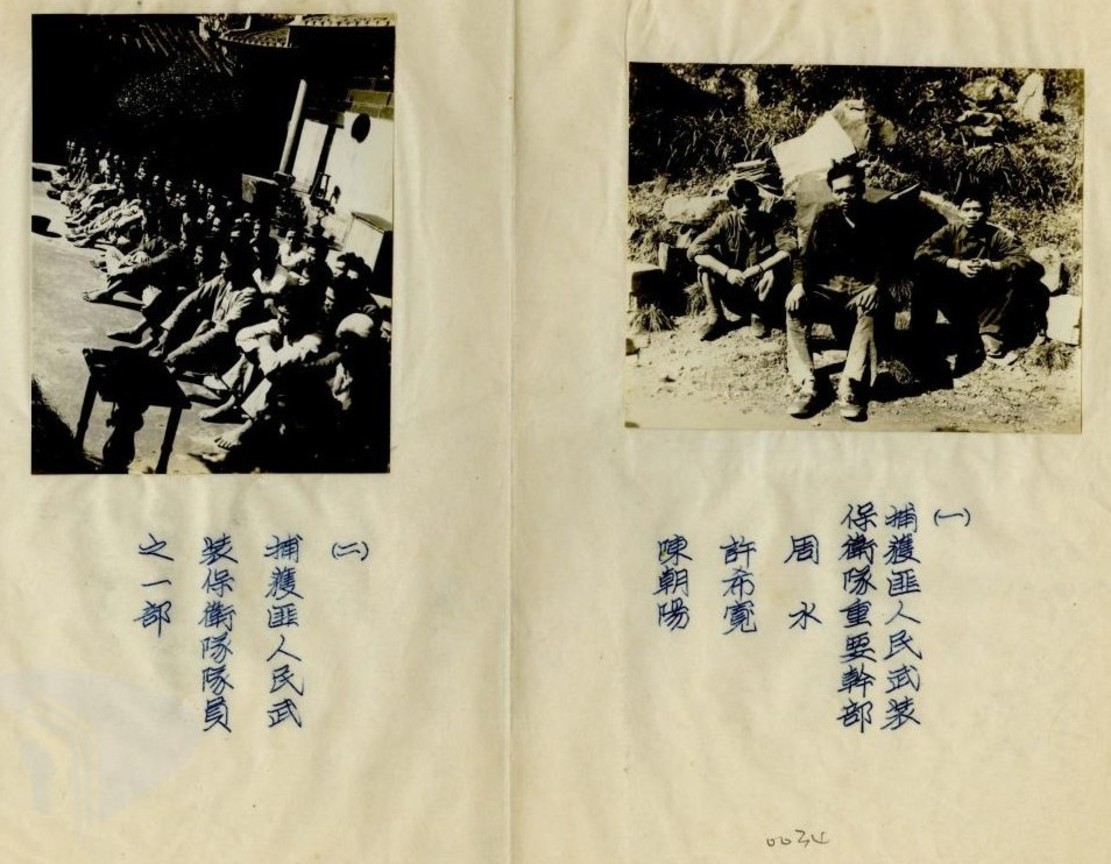 (一)
捕獲匪人民武裝
保衛隊重要幹部
周水
許希寬
陳朝陽
(二)
捕獲匪人民武
裝保衛隊隊員
之一部
0034